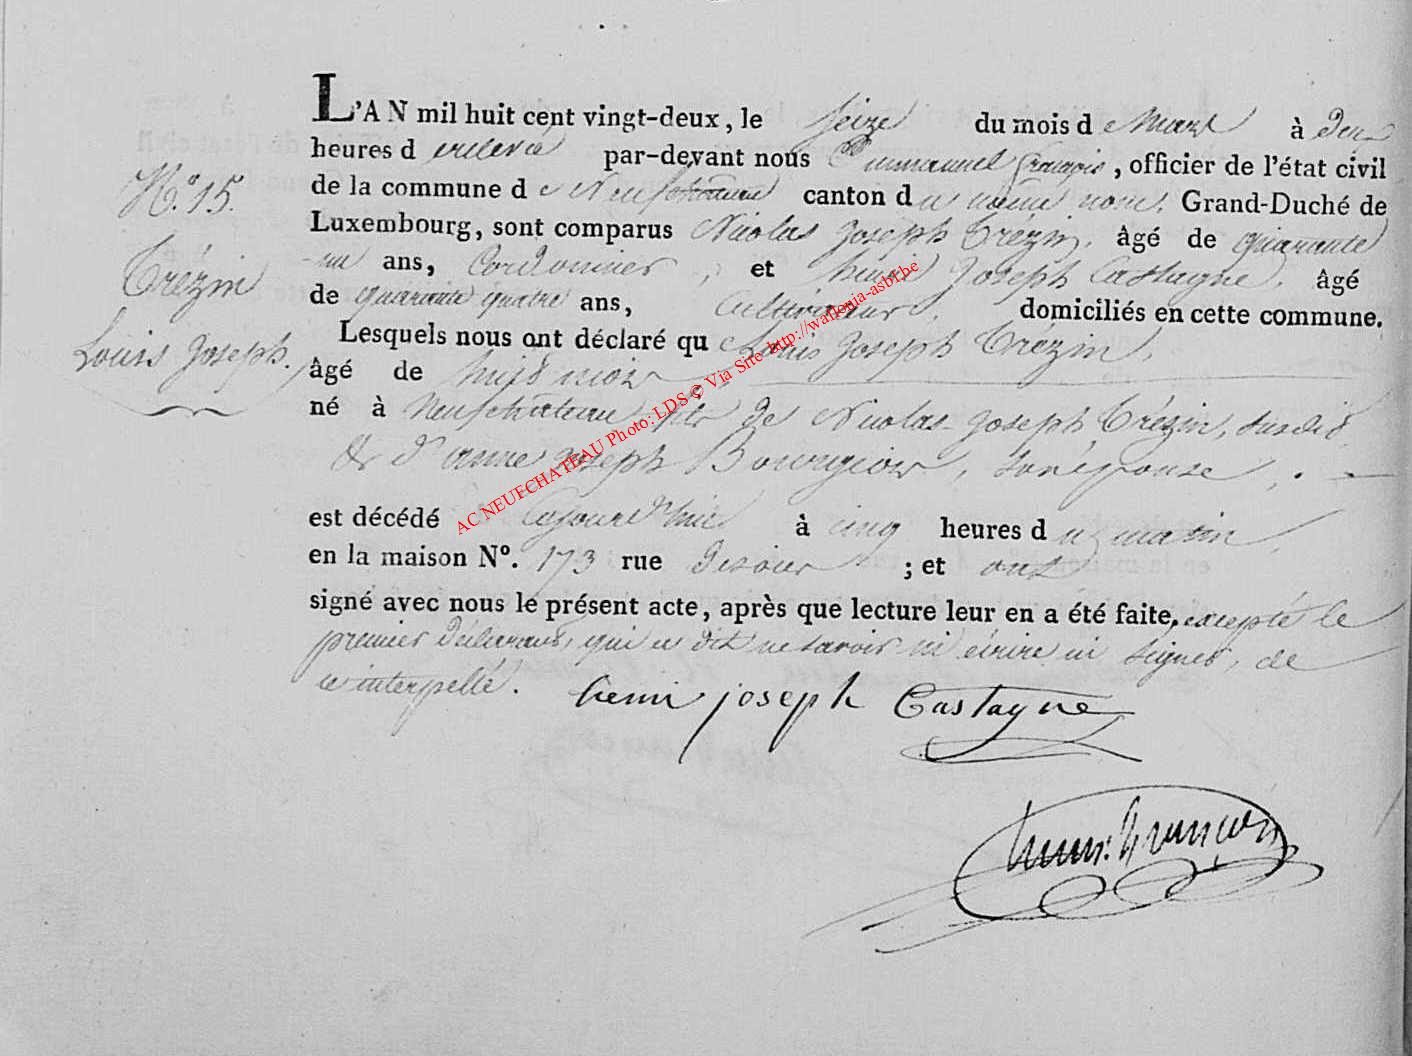 L'AN mil huit cent vingt-deux, le seize du mois de Mars à deux
heures de relevée par-devant nous Emmanuel françois, officier de l'état civil
N.° 15.
de la commune de Neufchateau canton du même nom. Grand-Duché de
Luxembourg, sont comparus Nicolas Joseph Trézin, âgé de quarante
Trézin
un ans, Cordonnier, et henri Joseph Castagne, âgé
de quarante quatre ans, Cultivateur, domiciliés en cette commune.
Louis Joseph.
Lesquels nous ont déclaré que Louis Joseph Trézin,
âgé de huit mois
né à Neufchateau fils de Nicolas Joseph Trézin, susdit
& d'anne Joseph Bourgeois, son épouse,
est décédé cejourd'hui à cinq heures du matin,
en la maison N°. 173 rue ; et ont
signé avec nous le présent acte, après que lecture leur en a été faite, excepté le
premier déclarant, qui a dit ne savoir ni écrire ni signer, de
ce interpellé. henri joseph Castagne
Emm. françois
AC NEUFCHATEAU Photo: LDS © Via Site http://wallonia-asbl.be